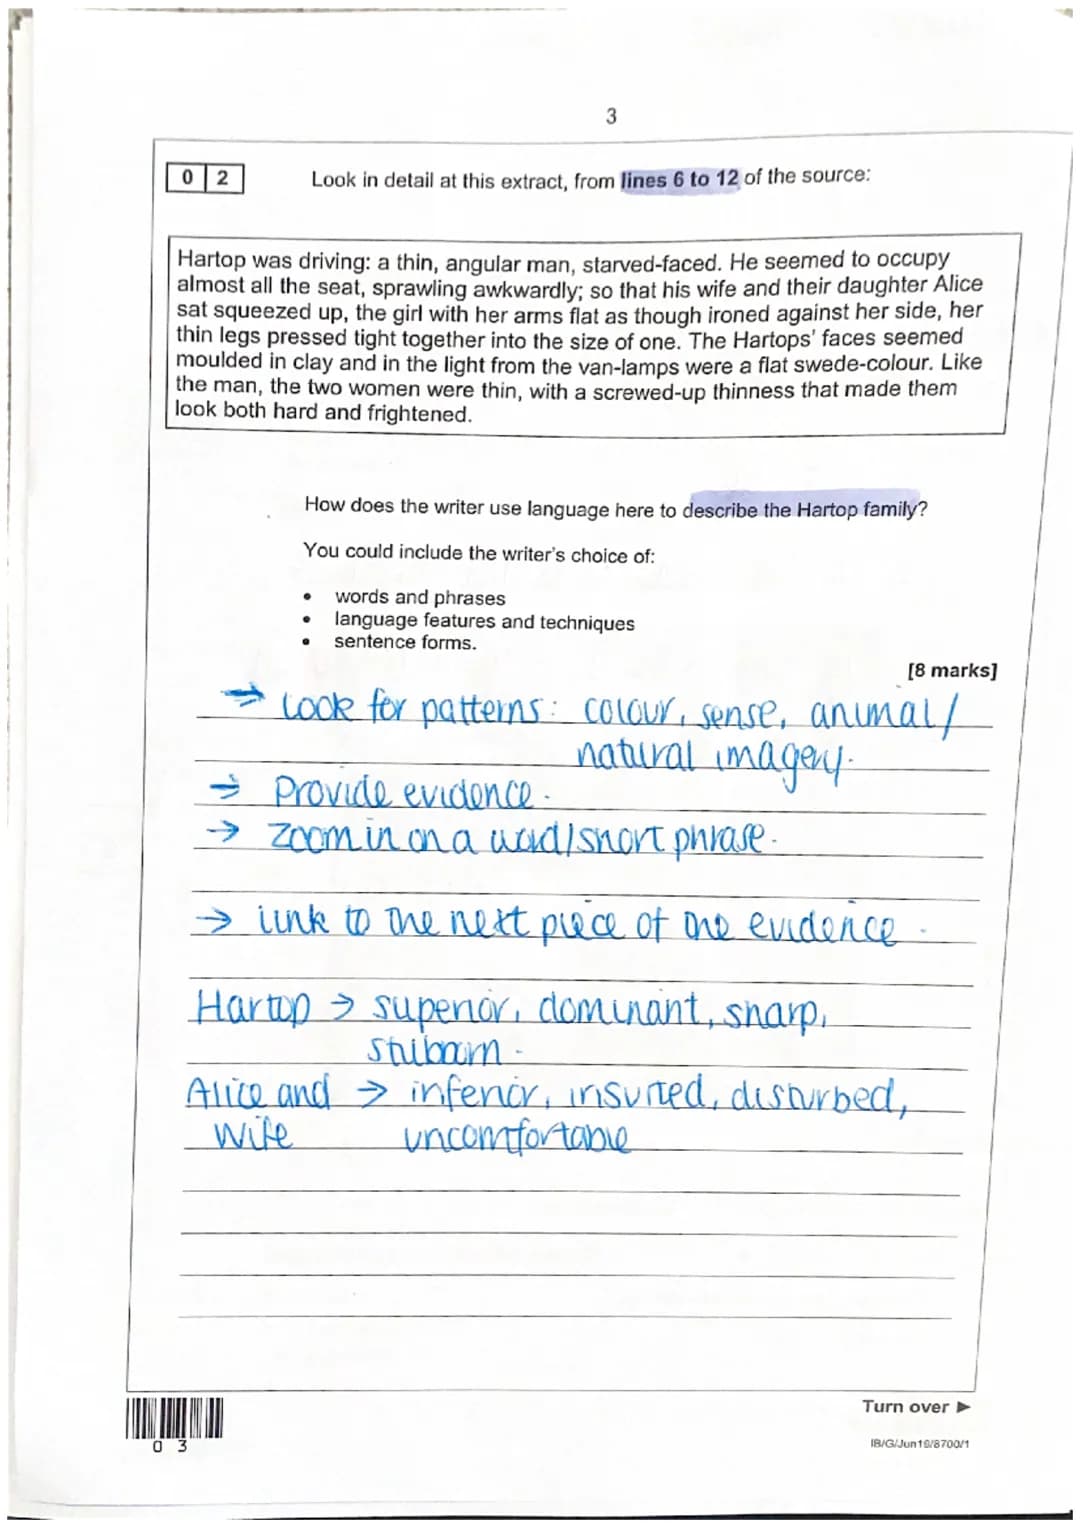 3
0 2 Look in detail at this extract, from lines 6 to 12 of the source:
Hartop was driving: a thin, angular man, starved-faced. He seemed to occupy
almost all the seat, sprawling awkwardly; so that his wife and their daughter Alice
sat squeezed up, the girl with her arms flat as though ironed against her side, her
thin legs pressed tight together into the size of one. The Hartops' faces seemed
moulded in clay and in the light from the van-lamps were a flat swede-colour. Like
the man, the two women were thin, with a screwed-up thinness that made them
look both hard and frightened.
How does the writer use language here to describe the Hartop family?
You could include the writer's choice of:
• words and phrases
• language features and techniques
• sentence forms.
[8 marks]
→ Look for patterns: colour, sense, animal/
natural imagery.
→ Provide evidence.
→ Zoom in on a word/short phrase.
→ link to the next piece of the evidence.
Hartop → superior, dominant, sharp,
stubborn.
Alice and → inferior, insulted, disturbed,
wife uncomfortable
Turn over ►
0 3
IB/G/Jun19/8700/1